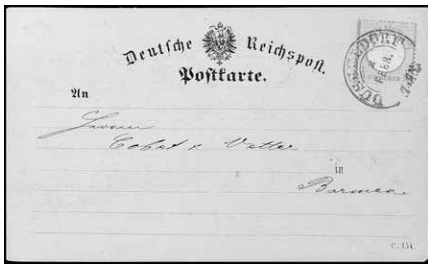 Deutsche Reichspost.
Postkarte.
An
Herren
Cobet & Vetter
in
Barmen
C. 154.